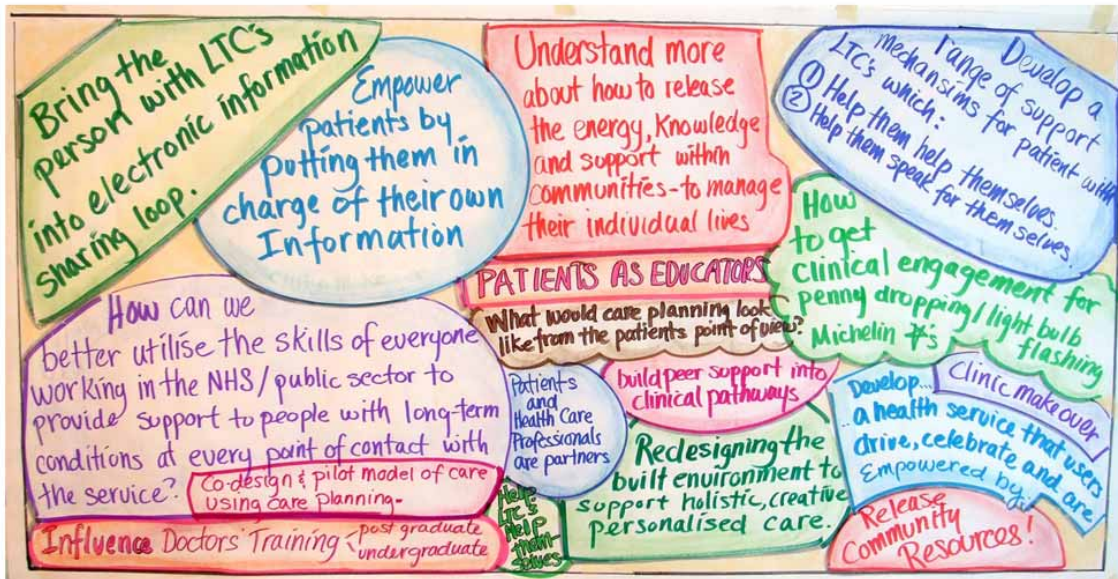 Bring the
person with LTC's
into electronic information
sharing loop.
Empower
patients by
putting them in
charge of their own
Information
Understand more
about how to release
the energy, Knowledge
and support within
communities - to manage
their individual lives
Develop a
range of support
mechansims for patient with
LTC's which:
① Help them help themselves.
② Help them speak for them selves.
PATIENTS AS EDUCATORS
How
to get
clinical engagement for
penny dropping / light bulb
flashing
Michelin *'s
What would care planning look
like from the patients point of view?
How can we
better utilise the skills of everyone
working in the NHS / public sector to
provide support to people with long-term
conditions at every point of contact with
the service?
Co-design & pilot model of care
using care planning -
Influence Doctors' Training < post graduate
undergraduate
Patients
and
Health Care
Professionals
are partners
build peer support into
clinical pathways
Help
LTC's
Help
them-
selves
Redesigning the
built environment to
support holistic, creative
personalised care.
Clinic make over
Develop...
..a health service that users
drive, celebrate and are
Empowered by!
Release
Community
Resources!